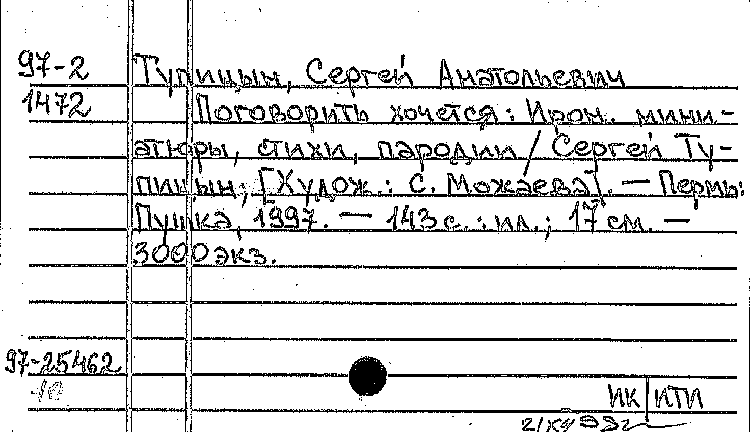 97-2 Тупицын, Сергей Анатольевич
1472 Поговорить хочется: Ирон. мини-
атюры, стихи, пародии / Сергей Ту-
пицын; [Худож.: С. Можаева]. — Пермь:
Пушка, 1997. — 143 с.: ил.; 17 см. —
3000 экз.
97-25462
10
ИК ИТИ